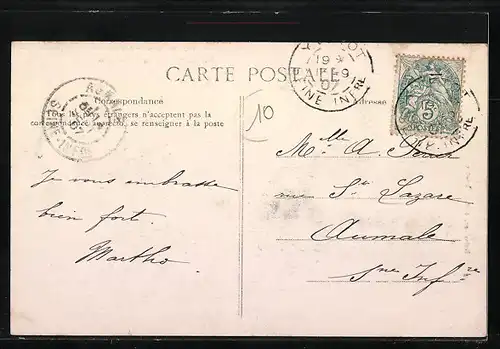 CARTE POSTALE
Correspondance
Adresse
Tous les pays étrangers n'acceptent pas la
correspondance au recto, se renseigner à la poste
10
19
07
INE INFRE
5
Je vous embrasse
bien fort.
Martho
Melle A.
rue St Lazare
Aumale
Sne Infre